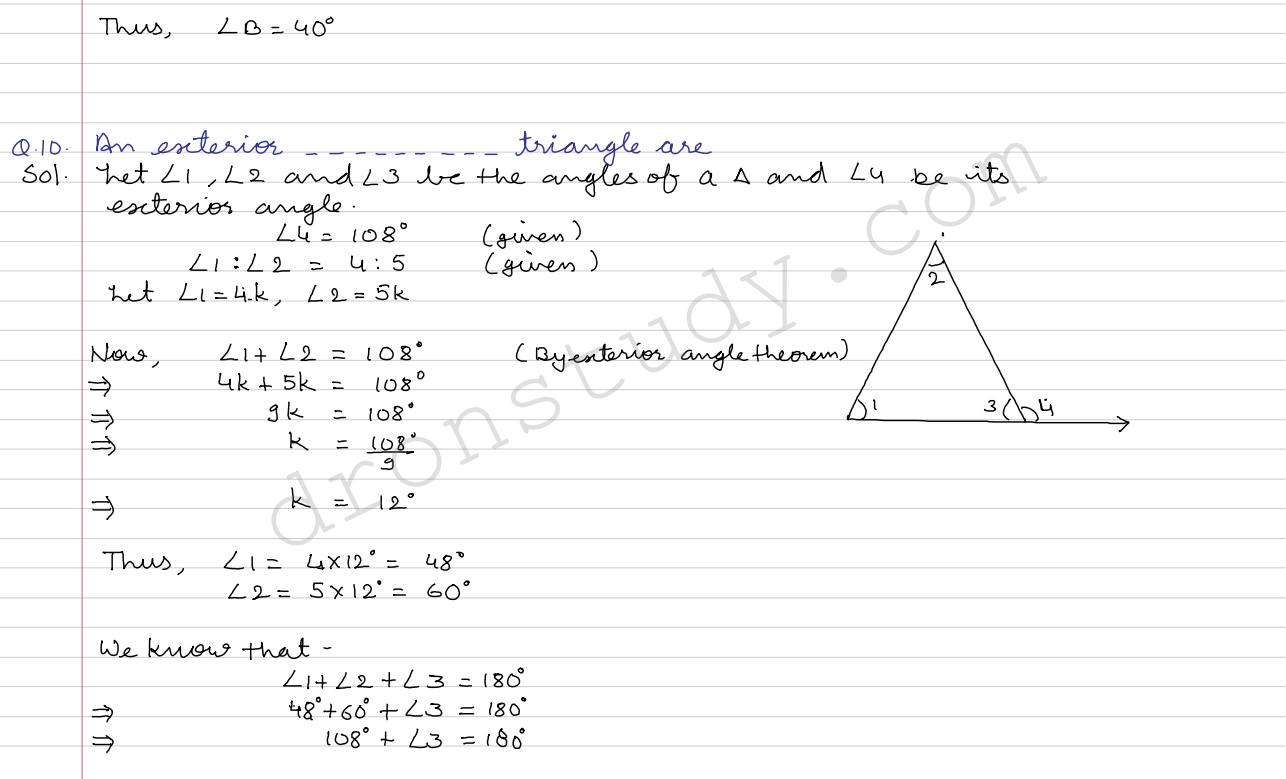 Thus, ∠B = 40°
Q.10. An exterior _ _ _ _ _ _ _ _ _ triangle are
Sol. Let ∠1, ∠2 and ∠3 be the angles of a Δ and ∠4 be its
exterior angle.
∠4 = 108° (given)
∠1 : ∠2 = 4 : 5 (given)
Let ∠1 = 4k, ∠2 = 5k
Now, ∠1 + ∠2 = 108° (By exterior angle theorem)
⇒ 4k + 5k = 108°
⇒ 9k = 108°
⇒ k = 108°/9
⇒ k = 12°
Thus, ∠1 = 4×12° = 48°
∠2 = 5×12° = 60°
We know that -
∠1 + ∠2 + ∠3 = 180°
⇒ 48° + 60° + ∠3 = 180°
⇒ 108° + ∠3 = 180°
2
1 3 4
dronstudy.com